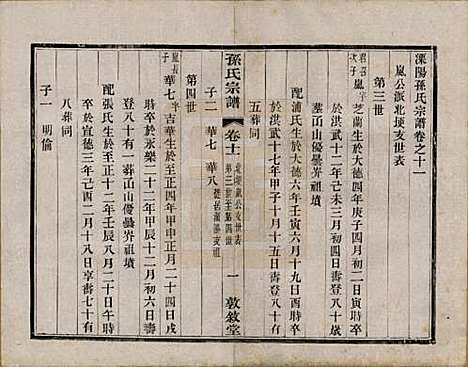 溧陽孫氏宗譜卷之十一
嵐公派北埂支世表
第三世
君召次子
嵐
字芝蘭生於大德四年庚子四月初二日寅時卒
於洪武十二年己未三月初四日壽登八十歲
葬山優曇界祖塋
配浦氏生於大德六年壬寅六月十九日酉時卒
於洪武十七年甲子十月十五日壽登八十
五葬同
子二 華七 華八
孫氏宗譜
卷十一
第三世至第四世
一
敦敘堂
第四世
嵐長子
華七
字吉華生於至正四年甲申正月二十四日戌
時卒於永樂二十二年甲辰十二月初六日壽
八十一葬山優曇界祖塋
配張氏生於至正十一年辛卯八月二十日午時
卒於宣德三年己酉二月十八日享壽七十
八葬同
子一 明倫